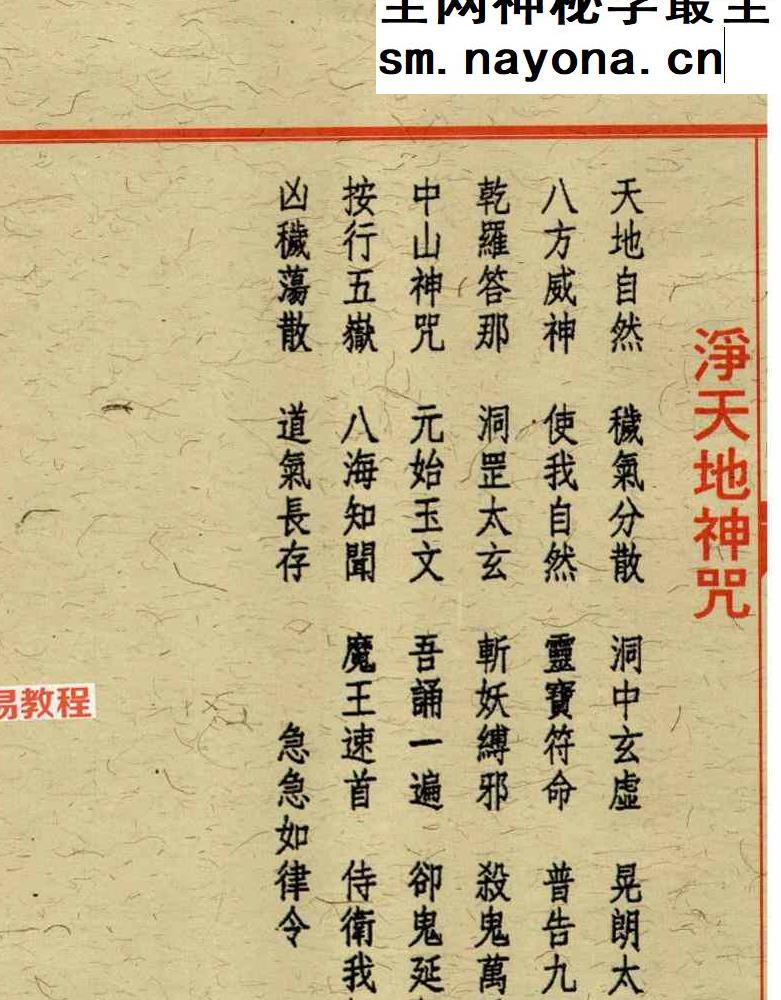 sm.nayona.cn
淨天地神咒
天地自然 穢氣分散 洞中玄虛 晃朗太
八方威神 使我自然 靈寶符命 普告九
乾羅答那 洞罡太玄 斬妖縛邪 殺鬼萬
中山神咒 元始玉文 吾誦一遍 卻鬼延
按行五嶽 八海知聞 魔王速首 侍衛我
凶穢蕩散 道氣長存 急急如律令
易教程